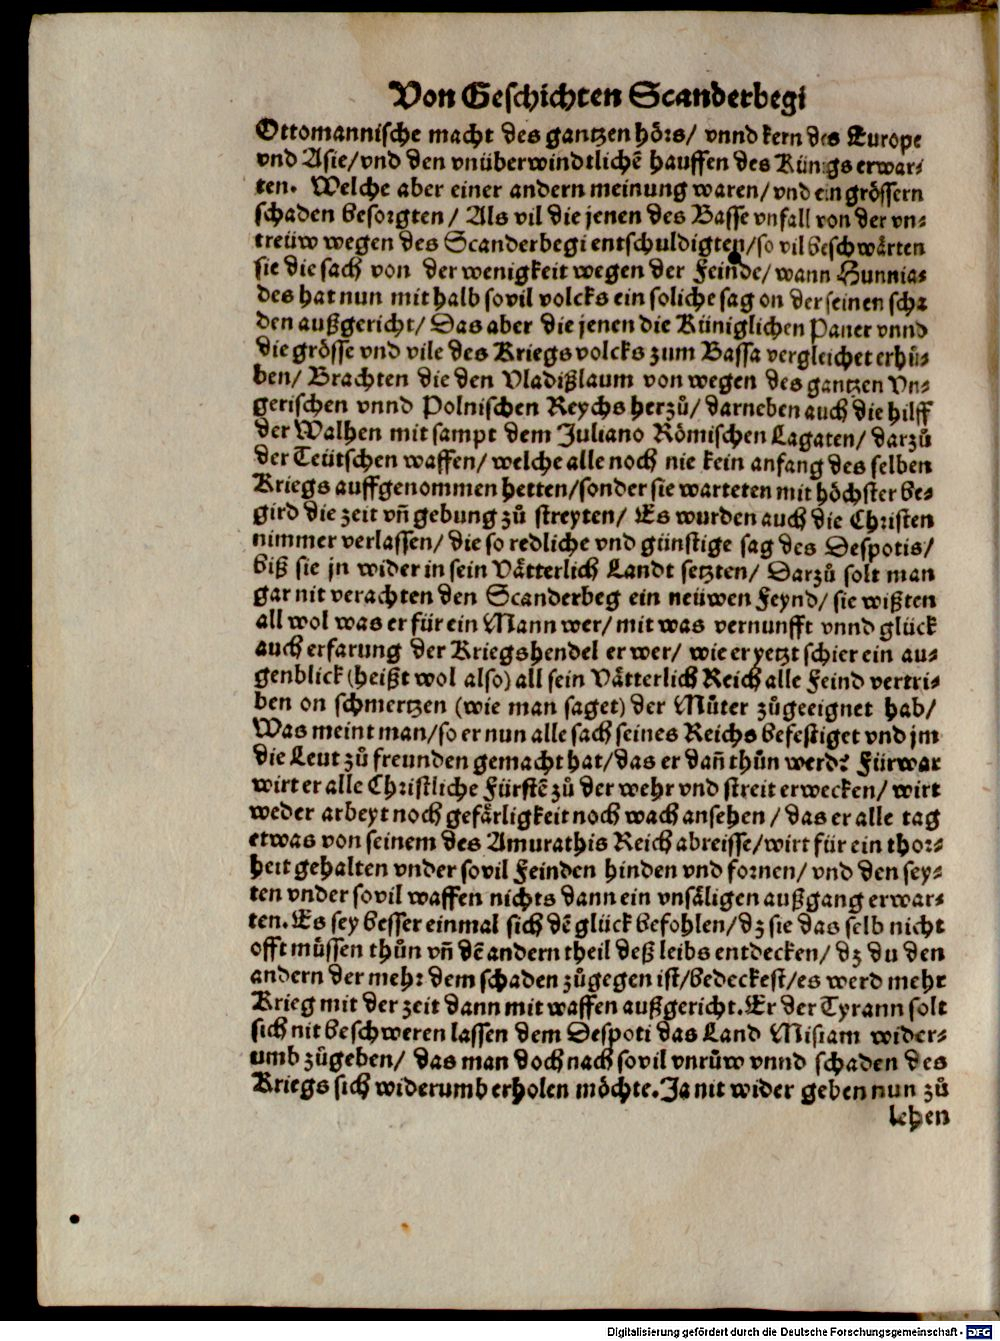 Von Geschichten Scanderbegi
Ottomannische macht des gantzen hörs/ vnnd kern des Europe
vnd Asie/vnd den vnüberwindtlichẽ hauffen des Künigs erwar-
ten. Welche aber einer andern meinung waren/vnd ein grössern
schaden besorgten/ Als vil die jenen des Basse vnfall von der vn-
treüw wegen des Scanderbegi entschuldigten/so vil beschwärten
sie die sach von der wenigkeit wegen der Feinde/wann Hunnia-
des hat nun mit halb sovil volcks ein soliche sag on der seinen scha
den außgericht/ Das aber die jenen die Küniglichen Paner vnnd
die grösse vnd vile des Kriegsvolcks zum Bassa vergleichet erhů-
ben/ Brachten die den Vladißlaum von wegen des gantzen Vn-
gerischen vnnd Polnischen Reychs herzů/ darneben auch die hilff
der Walhen mit sampt dem Juliano Römischen Lagaten/ darzů
der Teütschen waffen/ welche alle noch nie kein anfang des selben
Kriegs auffgenommen hetten/sonder sie warteten mit höchster be-
gird die zeit vñ gebung zů streyten/ Es wurden auch die Christen
nimmer verlassen/ die so redliche vnd günstige sag des Despotis/
biß sie jn wider in sein Vätterlich Landt setzten/ Darzů solt man
gar nit verachten den Scanderbeg ein neüwen Feynd/ sie wißten
all wol was er für ein Mann wer/ mit was vernunfft vnnd glück
auch erfarung der Kriegshendel er wer/ wie er yetzt schier ein au-
genblick (heißt wol also) all sein Vätterlich Reich alle Feind vertri-
ben on schmertzen (wie man saget) der Můter zůgeeignet hab/
Was meint man/so er nun alle sach seines Reichs befestiget vnd jm
die Leut zů freunden gemacht hat/das er dañ thůn werd? Fürwar
wirt er alle Christliche Fürstẽ zů der wehr vnd streit erwecken/ wirt
weder arbeyt noch gefärligkeit noch wach ansehen/ das er alle tag
etwas von seinem des Amurathis Reich abreisse/wirt für ein thor-
heit gehalten vnder sovil Feinden hinden vnd fornen/ vnd den sey-
ten vnder sovil waffen nichts dann ein vnsäligen außgang erwar-
ten. Es sey besser einmal sich dẽ glück befohlen/dz sie das selb nicht
offt müssen thůn vñ dẽ andern theil deß leibs entdecken/ dz du den
andern der mehr dem schaden zůgegen ist/bedeckest/es werd mehr
Krieg mit der zeit dann mit waffen außgericht. Er der Tyrann solt
sich nit beschweren lassen dem Despoti das Land Misiam wider-
umb zůgeben/ das man doch nach sovil vnrůw vnnd schaden des
Kriegs sich widerumb erholen möchte. Ja nit wider geben nun zů
lehen
Digitalisierung gefördert durch die Deutsche Forschungsgemeinschaft - DFG